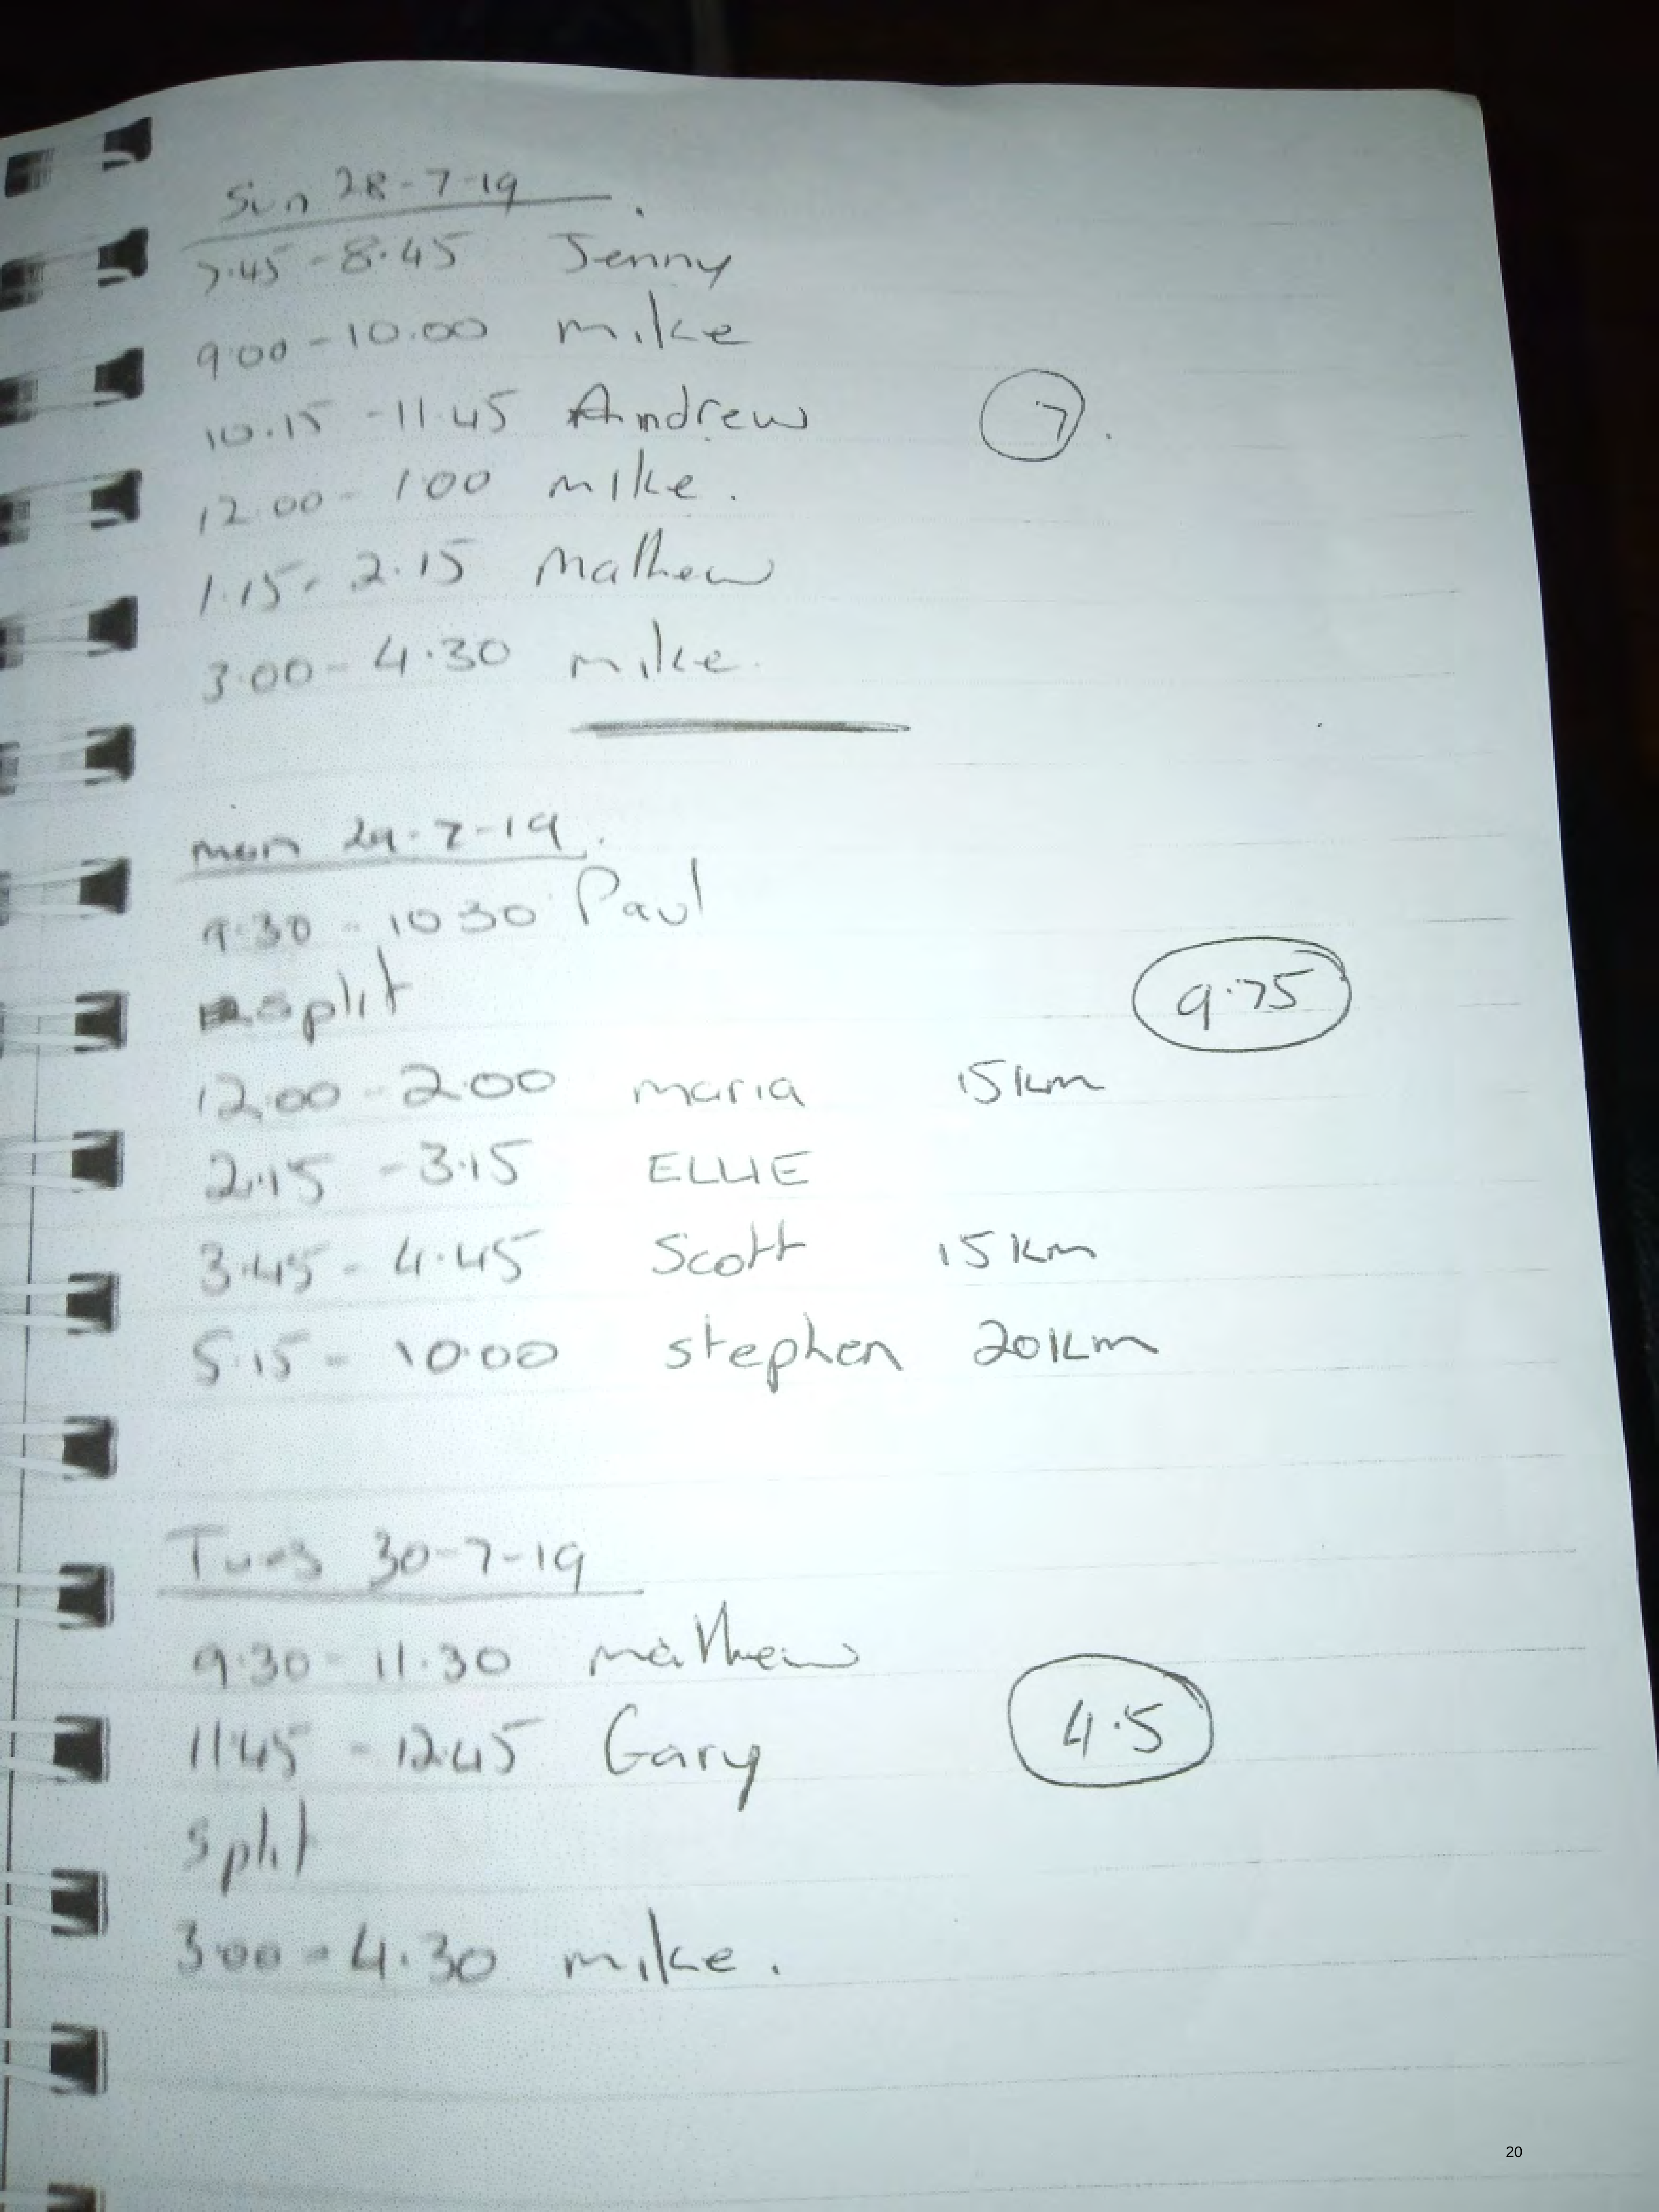 Sun 28-7-19
7.45 - 8.45 Jenny
9.00 - 10.00 mike
10.15 - 11.45 Andrew
7
12.00 - 1.00 mike.
1.15 - 2.15 Mathew
3.00 - 4.30 mike.
mon 29-7-19
9.30 - 10 30 Paul
split
9.75
12.00 - 2.00 maria 15km
2.15 - 3.15 ELLIE
3.45 - 4.45 Scott 15km
5.15 - 10.00 stephen 20km
Tues 30-7-19
9.30 - 11.30 mathew
11.45 - 12.45 Gary
4.5
split
3.00 - 4.30 mike.
20